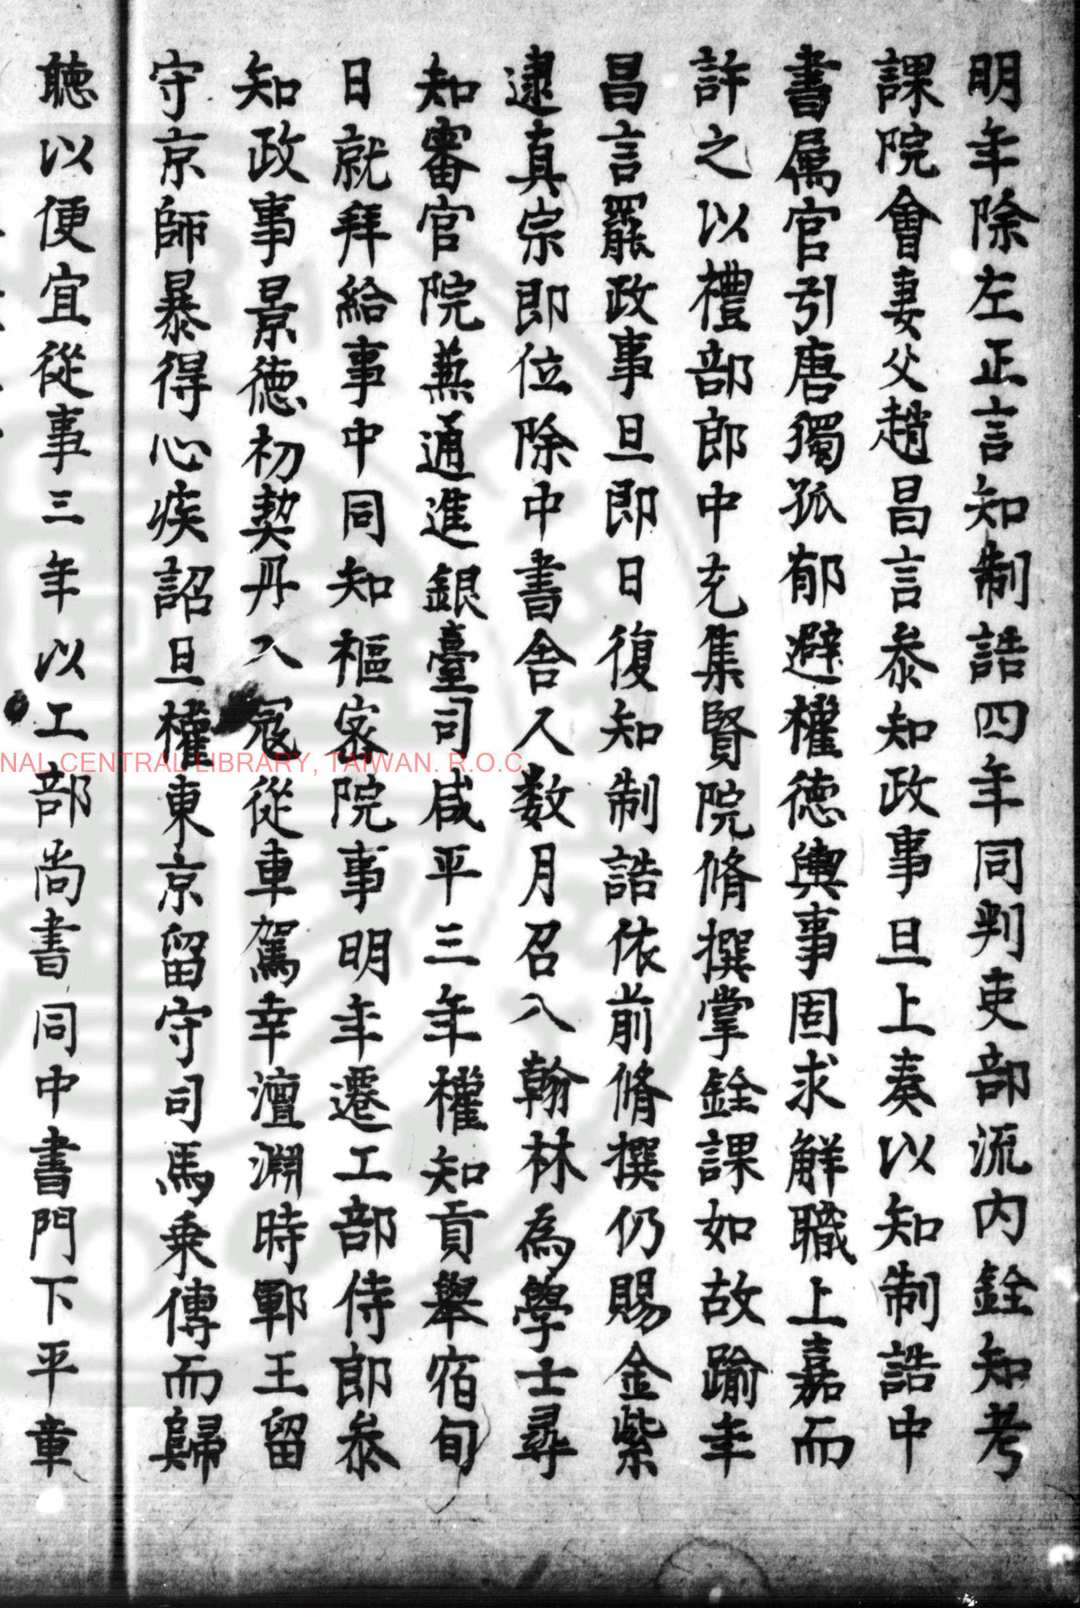 明年除左正言知制誥四年同判吏部流内銓知考
課院會妻父趙昌言叅知政事旦上奏以知制誥中
書属官引唐獨孤郁避權德輿事固求解職上嘉而
許之以禮部郎中充集賢院脩撰掌銓課如故踰年
昌言罷政事旦即日復知制誥依前脩撰仍賜金紫
逮真宗即位除中書舍人数月召入翰林為學士尋
知審官院兼通進銀臺司咸平三年權知貢舉宿旬
日就拜給事中同知樞宻院事明年遷工部侍郎叅
知政事景德初契丹入宼從車駕幸澶淵時鄆王留
守京師暴得心疾詔旦權東京留守司馬乗傳而歸
聽以便宜從事三年以工部尚書同中書門下平章
NAL CENTRAL LIBRARY, TAIWAN. R.O.C.